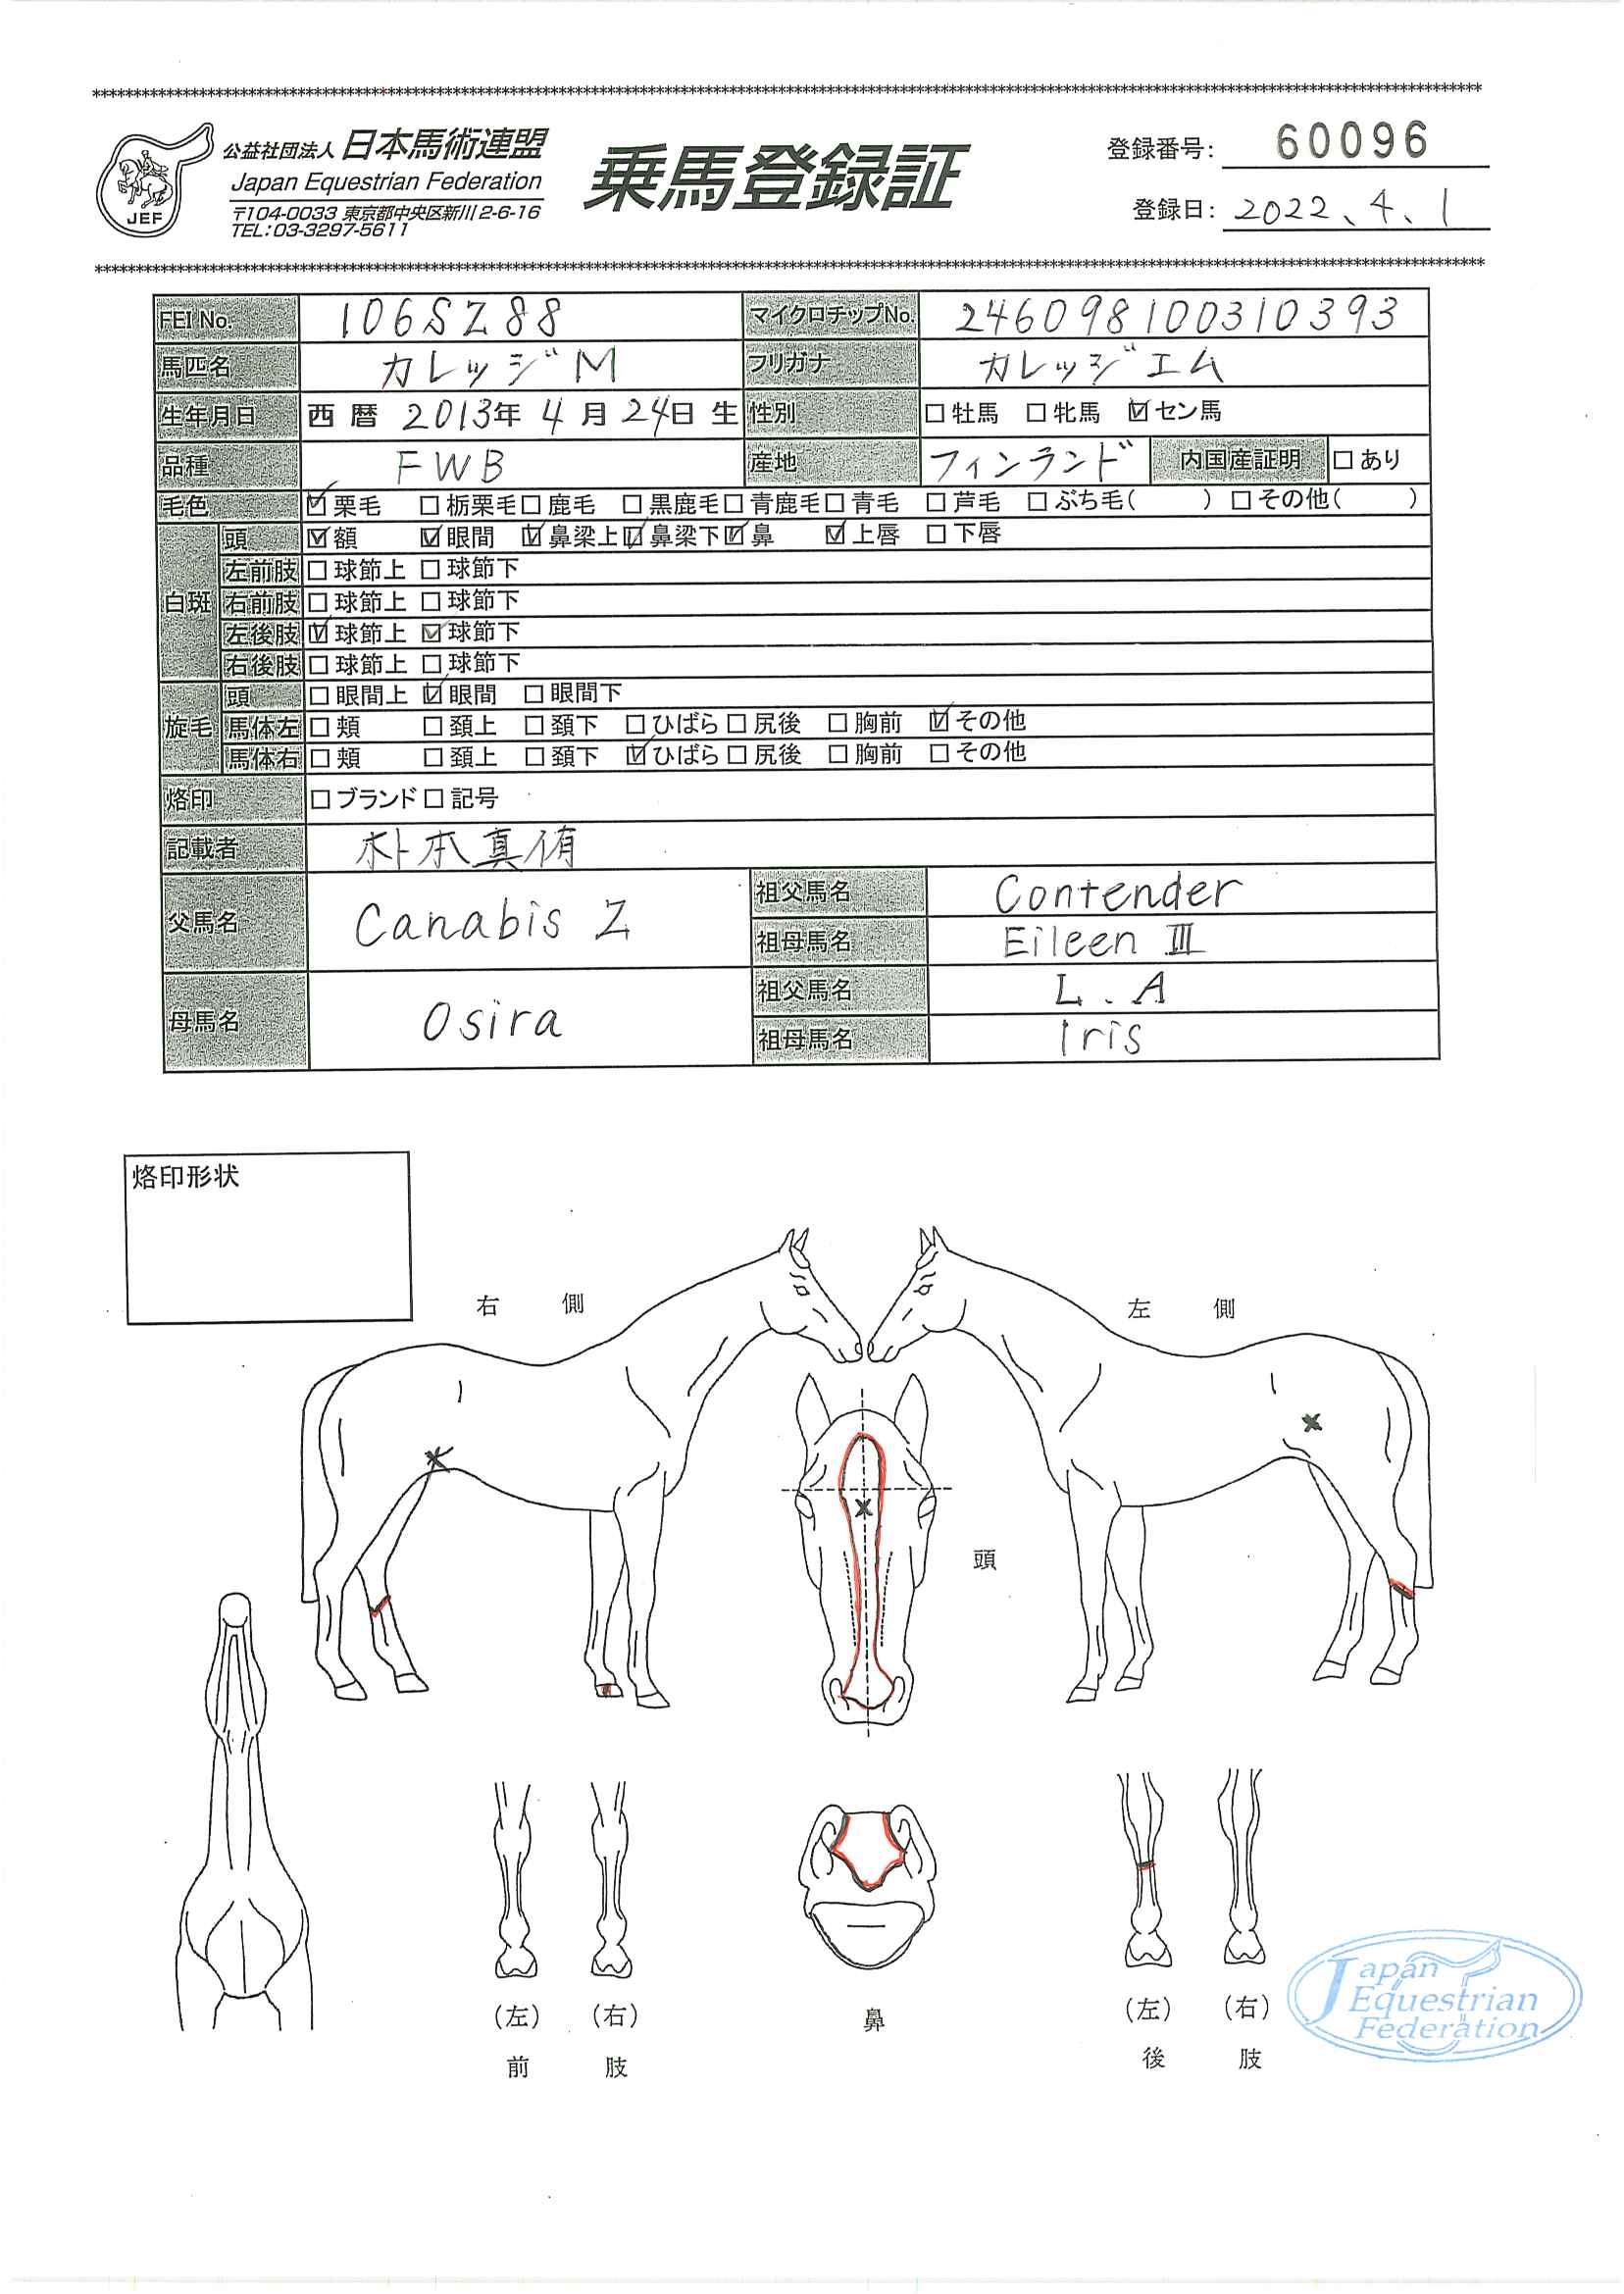 公益社団法人 日本馬術連盟
Japan Equestrian Federation
〒104-0033 東京都中央区新川2-6-16
TEL:03-3297-5611
JEF
乗馬登録証
登録番号: 60096
登録日: 2022、4、1
FEI No. 106SZ88 マイクロチップNo. 246098100310393
馬匹名 カレッジM フリガナ カレッジエム
生年月日 西暦 2013年 4月 24日 生 性別 □牡馬 □牝馬 ☑セン馬
品種 FWB 産地 フィンランド 内国産証明 □あり
毛色 ☑栗毛 □栃栗毛 □鹿毛 □黒鹿毛 □青鹿毛 □青毛 □芦毛 □ぶち毛( ) □その他( )
白斑 頭 ☑額 ☑眼間 ☑鼻梁上 ☑鼻梁下 ☑鼻 ☑上唇 □下唇
左前肢 □球節上 □球節下
右前肢 □球節上 □球節下
左後肢 ☑球節上 ☑球節下
右後肢 □球節上 □球節下
旋毛 頭 □眼間上 ☑眼間 □眼間下
馬体左 □頬 □頚上 □頚下 □ひばら □尻後 □胸前 ☑その他
馬体右 □頬 □頚上 □頚下 ☑ひばら □尻後 □胸前 □その他
烙印 □ブランド □記号
記載者 本真侑
父馬名 Canabis Z 祖父馬名 Contender
祖母馬名 Eileen III
母馬名 Osira 祖父馬名 L.A
祖母馬名 Iris
烙印形状
右側 左側
頭
(左) (右) 鼻 (左) (右)
前肢 後肢
Japan
Equestrian
Federation